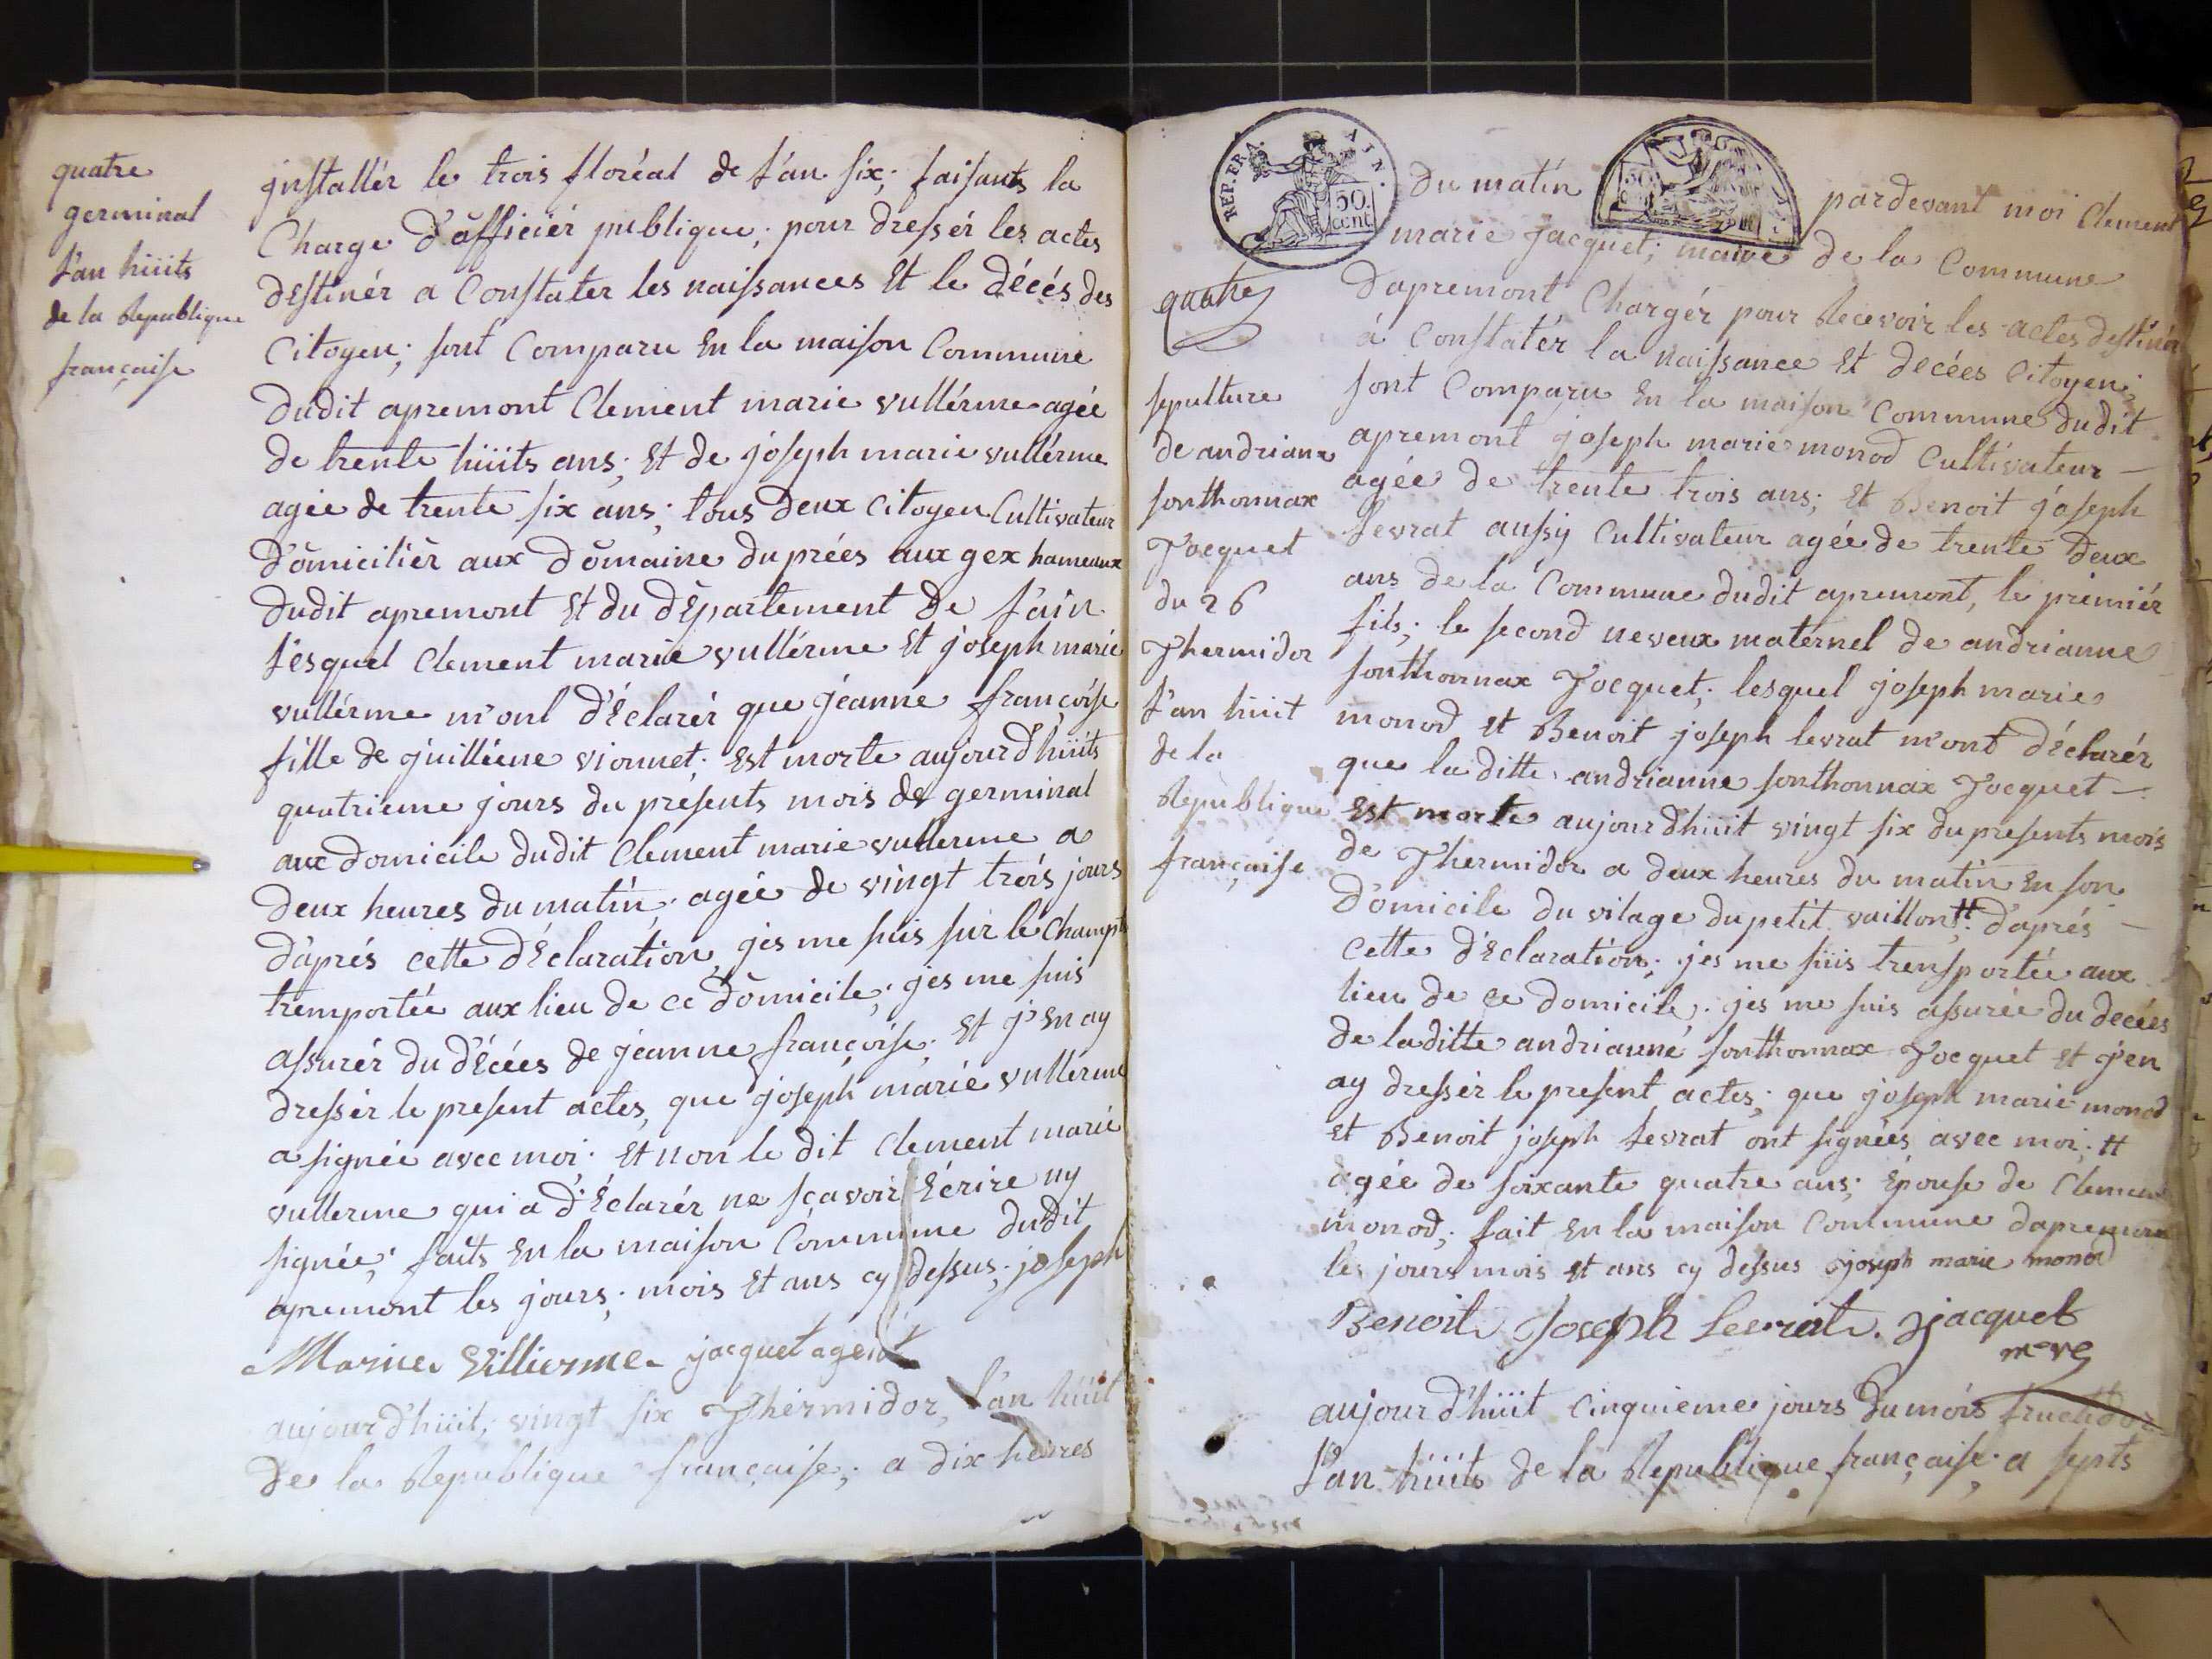 quatre
germinal
l'an hüits
de la Republique
française
jnstallér le trois floréal de l'an six; faisants la
Charge d'officiér publique; pour dressér les actes
destinér a Constater les naissances Et le décés des
Citoyen; sont Comparu En la maison Commune
dudit apremont Clement marie vullérme agée
de trente hüits ans; Et de joseph marie vullérme
agée de trente six ans; tous deux Citoyen Cultivateur
domiciliér aux domaine du prées aux gex hameaux
dudit apremont Et du département de l'ain
lésquel Clement marie vullérme Et joseph marie
vullérme m'ont d'Éclarér que jéanne françoise
fille de guilléene vionnet; Est morte aujourd'hüits
quatrieme jours du présents mois de germinal
aux domicile dudit Clement marie vullerme a
deux heures du matin; agée de vingt trois jours
d'aprés cette d'Éclaration, jes me suis sur le Champts
tremportée aux lieu de ce domicile; jes me suis
assurér du d'écées de jéanne françoise; Et j'En ay
dressér le present actes, que joseph marie vullerme
a signée avec moi; Et non le dit Clement marie
vullerme qui a d'Éclarér ne sçavoir Eécrire ny
signée; faits En la maison Commune dudit
apremont les jours; mois Et ans cy dessus; joseph
Marie Villierme jacquet agent
aujourd'hüit; vingt six Thérmidor, l'an hüit
de la Republique française; a dix heures
REP. FRA. AIN.
50. cent
50
du matin pardevant moi Clement
marie jacquet; maire de la Commune
dapremont Chargér pour Recevoir les actes destinér
á Constatér la naissance Et decées Citoyen;
sont Comparu En la maison Commune dudit
apremont joseph marie monod Cultivateur
agée de trente trois ans; Et Benoit joseph
levrat aussy Cultivateur agée de trente deux
ans de la Commune dudit apremont, le premiér
fils; le second neveux maternel de andrianne
sonthonnax Jocquet; lesquel joseph marie
monod et Benoit joseph levrat m'ont d'éclarér
que laditte andrianne sonthonnax Jocquet
Est morte aujourd'hüit vingt six du presents mois
de Thermidor a deux heures du matin En son
domicile du vilage du petit vaillon; # d'aprés
Cette d'Éclaration; jes me süis trensportée aux
lieu de ce domicile; jes me suis assurée du decées
de laditte andrianne sonthonnax Jocquet et j'en
ay dressér le present actes; que joseph marie monod
Et Benoit joseph levrat ont signées avec moi; #
agée de soixante quatre ans; Épouse de Clement
monod; fait En la maison Commune dapremont
les jours mois et ans cy dessus joseph marie monod
Benoit Joseph Levrat. jacquet
aujourd'hüit Cinquieme jours du mois fructidor
l'an hüits de la Republique française; a septs
quatre
sepulture
de andrianne
sonthonnax
Jocquet
du 26
Thermidor
l'an huit
de la
Republique
française